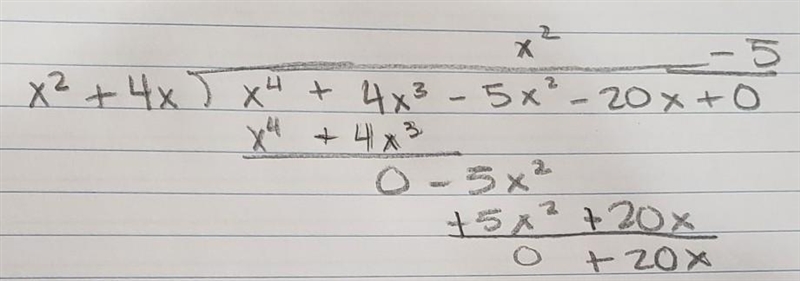 x² - 5
x² + 4x ) x⁴ + 4x³ - 5x² - 20x + 0
x⁴ + 4x³
0 - 5x²
+5x² + 20x
0 + 20x